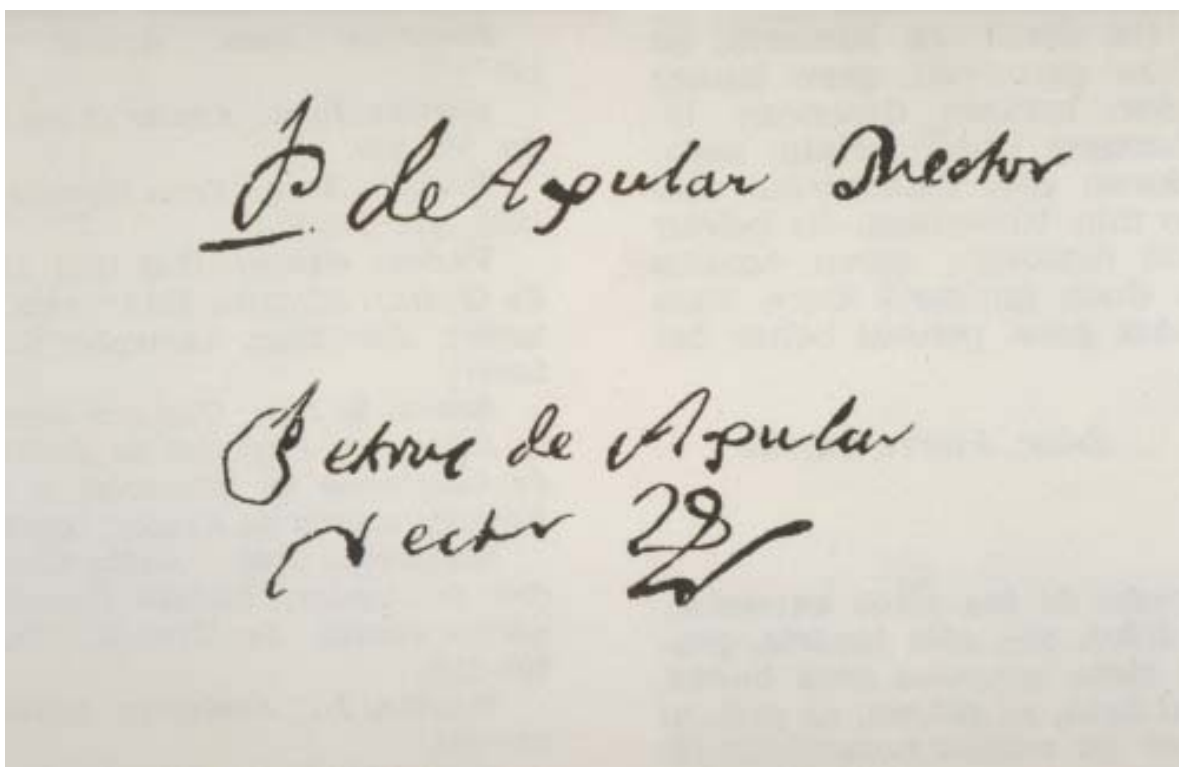 P. de Agular Rector
Petrus de Agular
rector 28